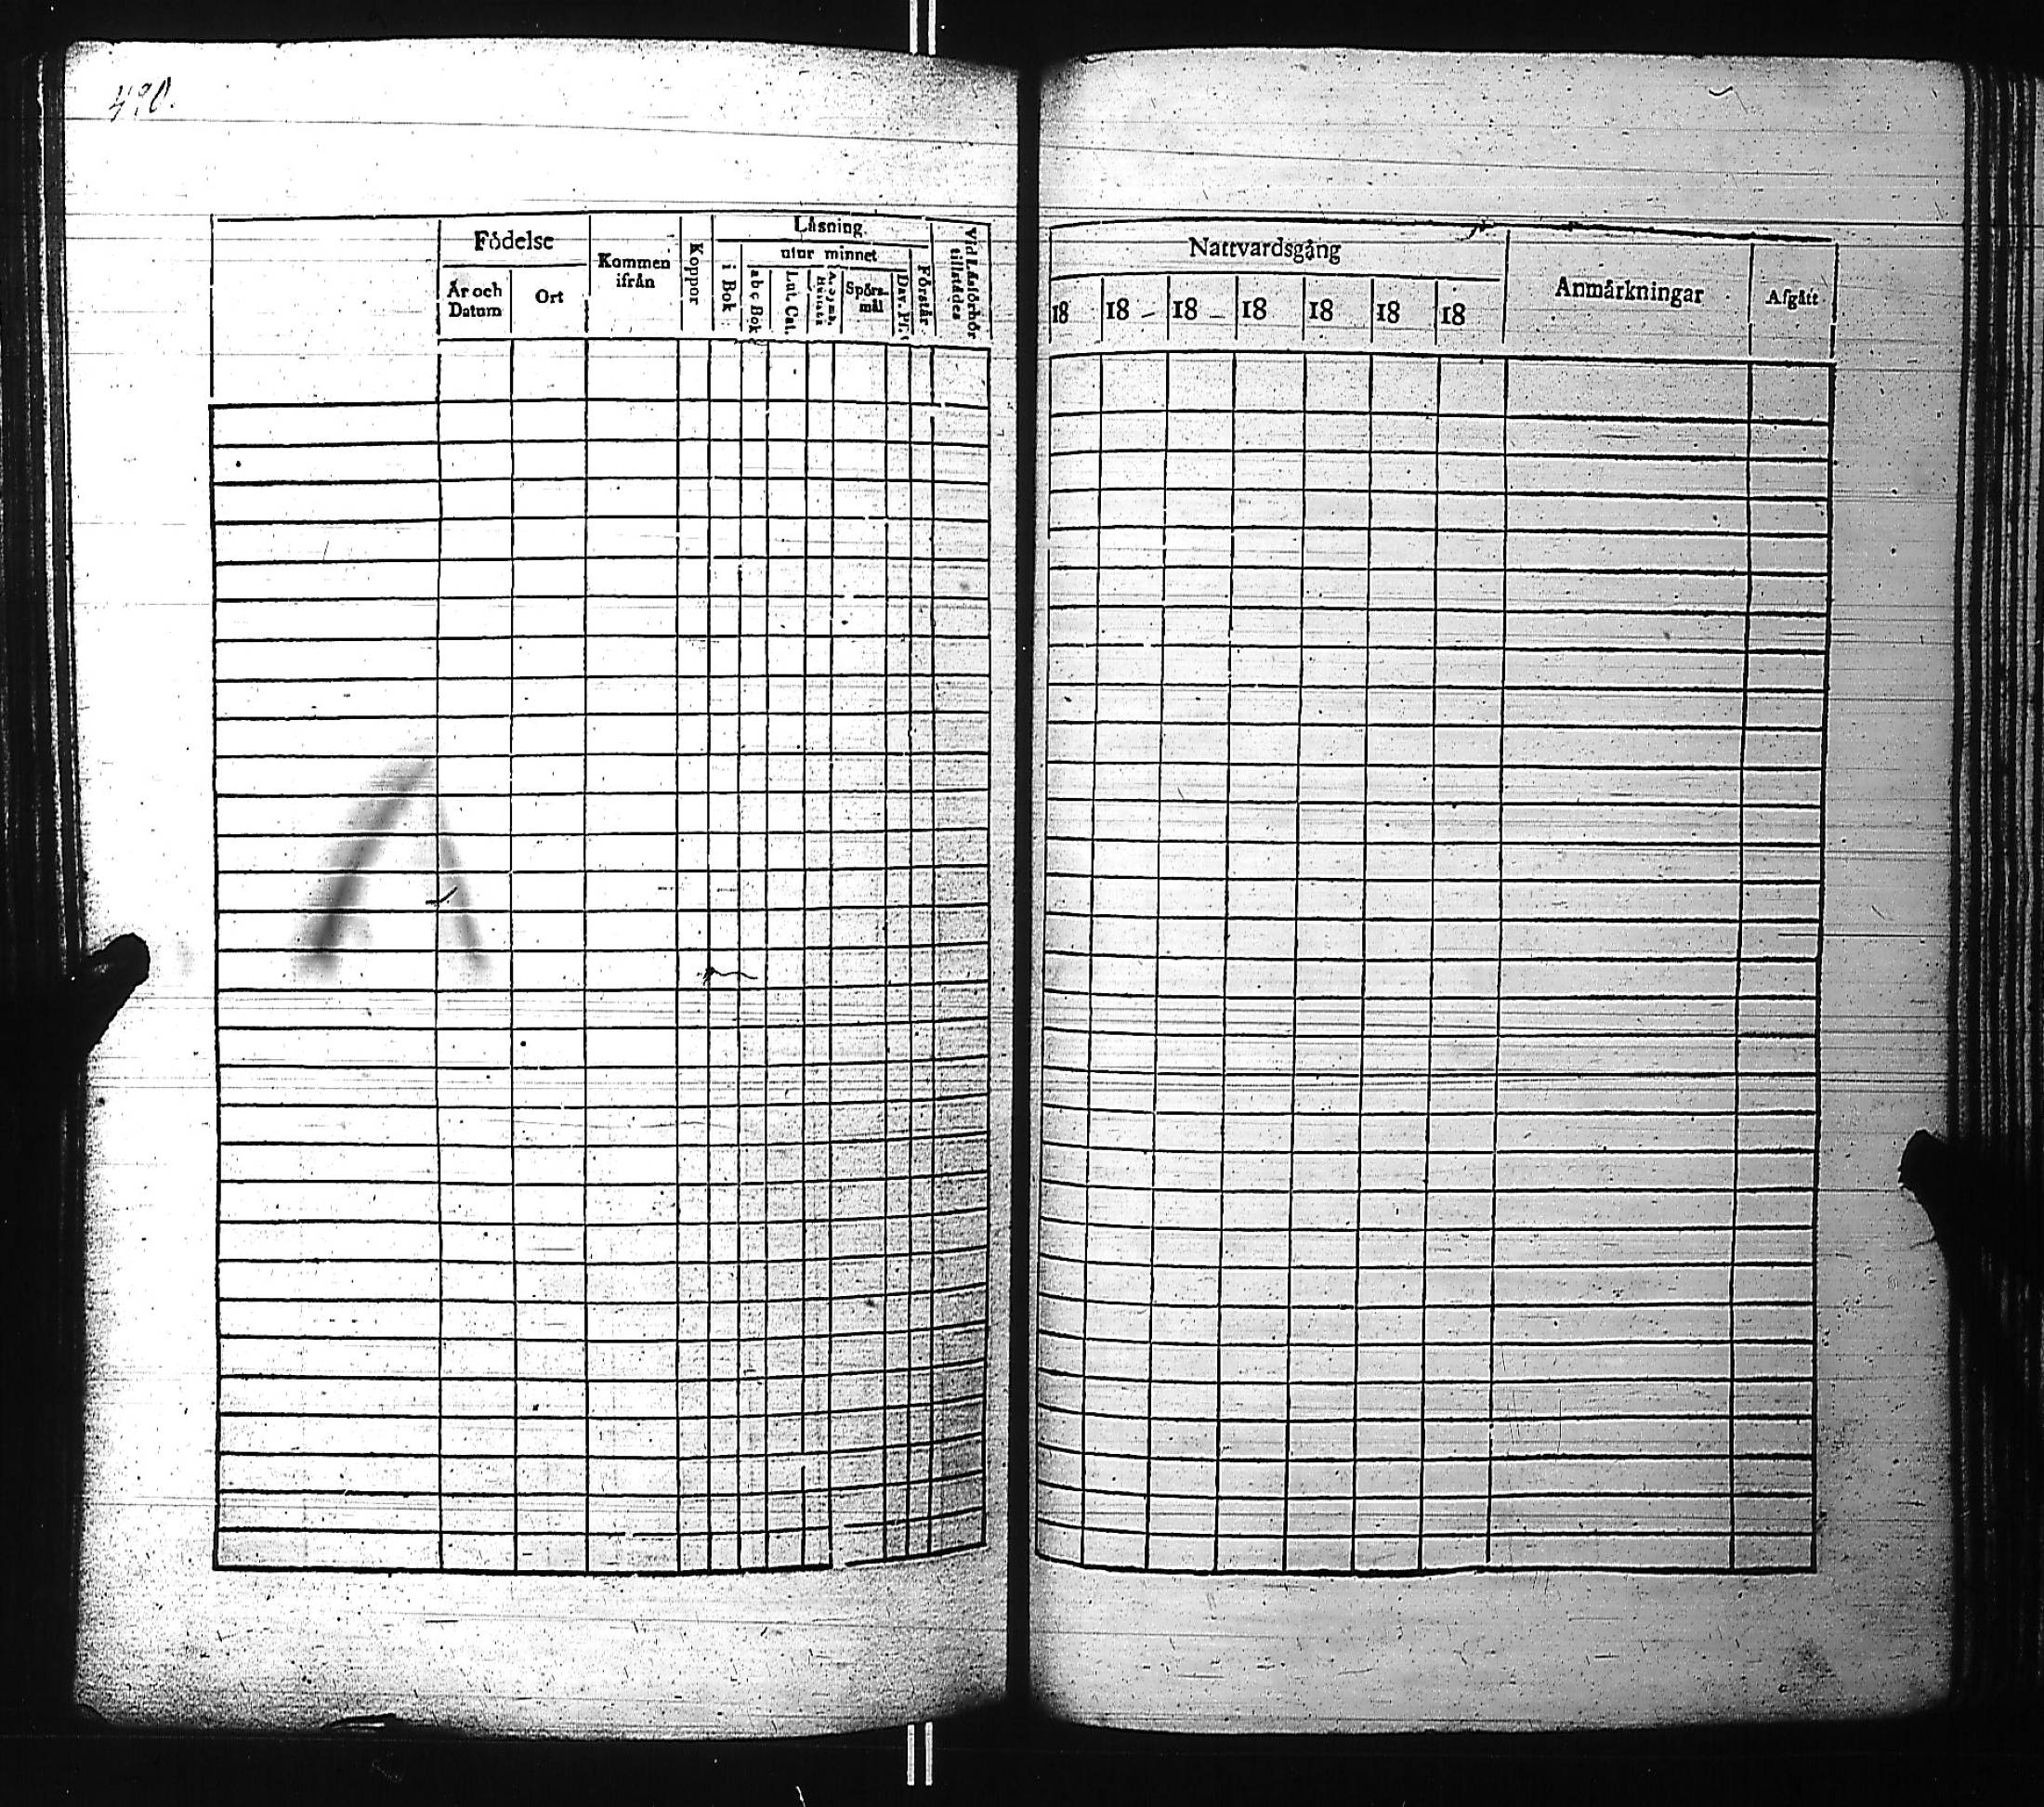 490.
Födelse
År och Datum
Ort
Kommen ifrån
Koppor
Läsning
i Bok
utur minnet
abc Bok
Lut. Cat.
Spörs-mål
Dav. Ps.
Förstår
Vid Läsförhör tillstädes
Nattvardsgång
18 18 18 18 18 18 18
Anmärkningar
Afgått